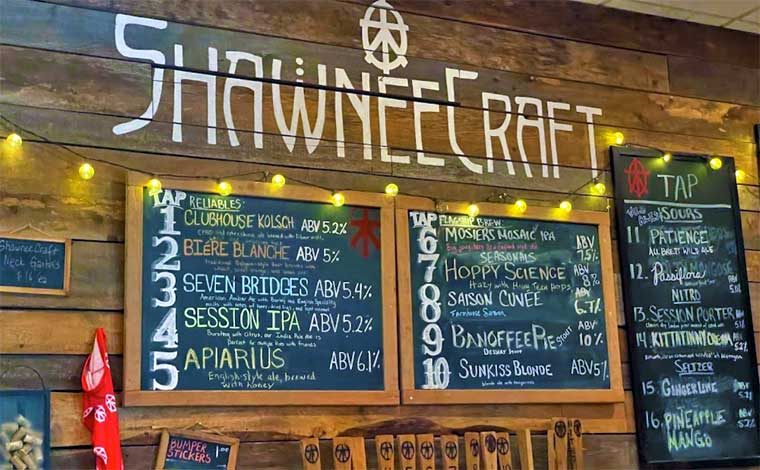 SHAWNEECRAFT
ShawneeCraft
Neck Gaiters
$16 ea
TAP RELIABLES:
1 CLUBHOUSE KOLSCH ABV 5.2%
2 BIÉRE BLANCHE ABV 5%
3 SEVEN BRIDGES ABV 5.4%
American Amber Ale with
4 SESSION IPA ABV 5.2%
Bursting with Citrus, our India Pale Ale is
perfect for with friends
5 APIARIUS ABV 6.1%
English-style ale, brewed
with honey
TAP FLAGSHIP BREW:
6 MOSIERS MOSAIC IPA ABV 7.5%
SEASONALS
7 HOPPY SCIENCE ABV 8%
Hazy with
8 SAISON CUNÉE ABV 6.7%
Farmhouse Saison
9 BANOFFEE PIE STOUT ABV 10%
Dessert Stout
10 SUNKISS BLONDE ABV 5%
blonde ale with tangerines
TAP
SOURS
11. PATIENCE
ALL BRETT WILD ALE
12. Passiflore
NITRO
13. SESSION PORTER
14. KITTATINNY CREAM
SELTZER
15. GINGER LIME
16. PINEAPPLE
MANGO
BUMPER
STICKERS